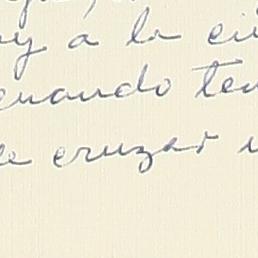 y á la ciu
cuando ten
e cruzar